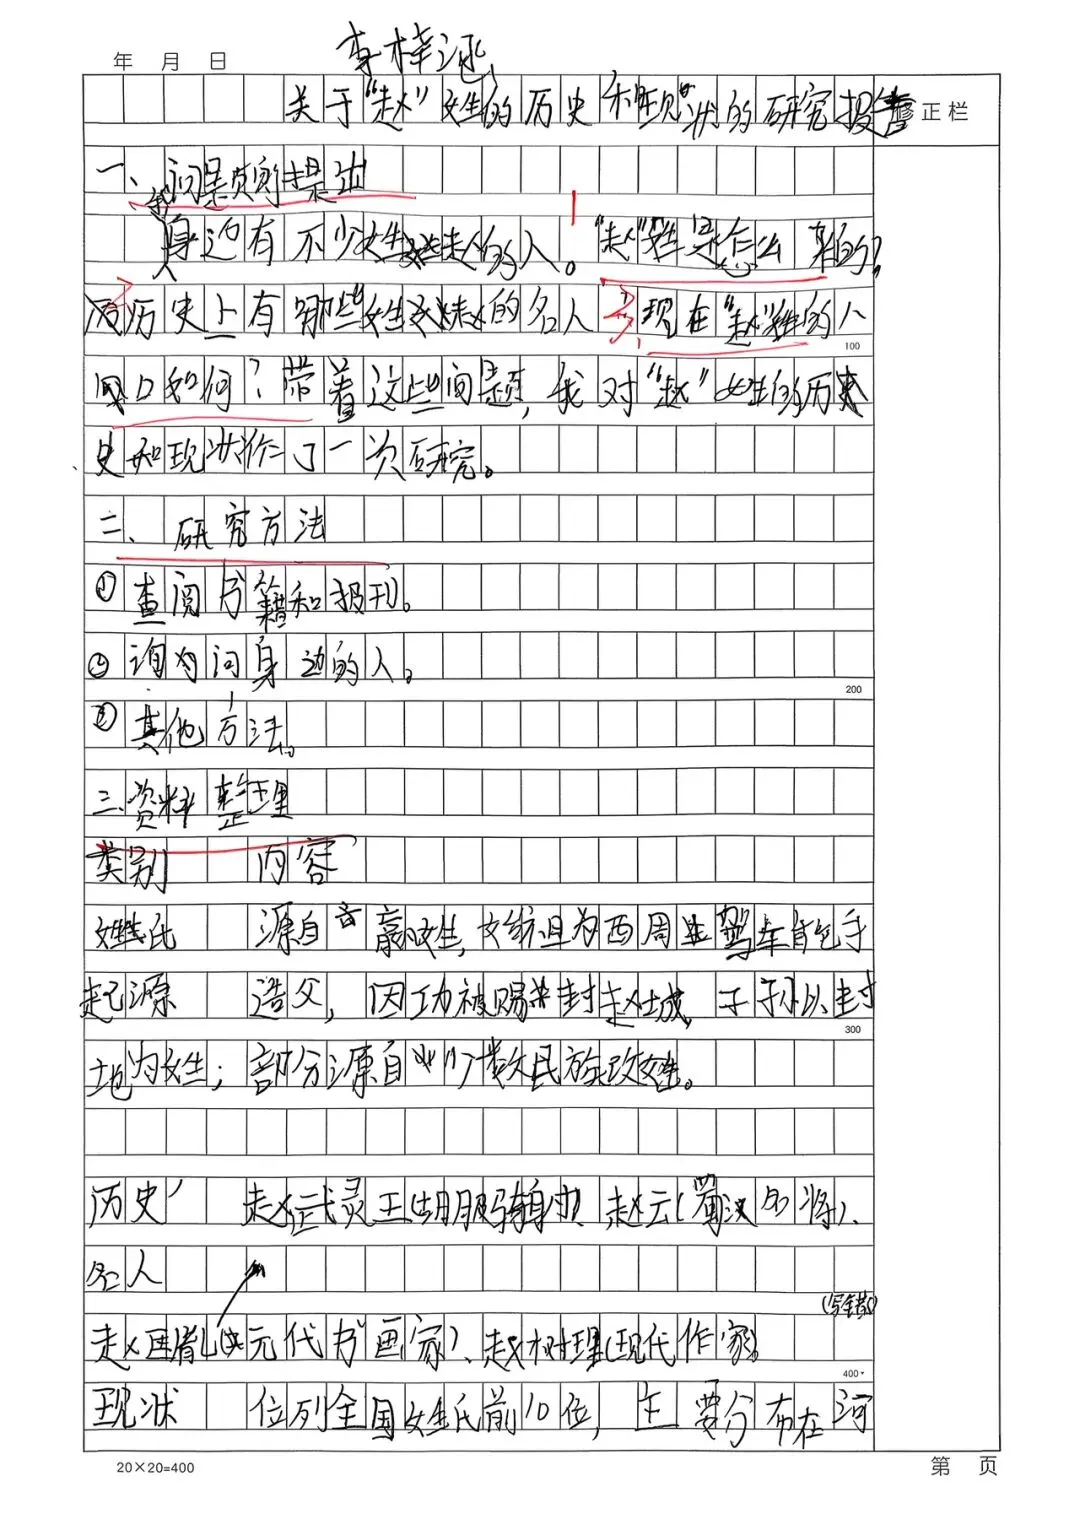 李梓涵
年 月 日
关于“赵”姓的历史和现状的研究报告
修正栏
一、问题的提出
我身边有不少姓赵的人。“赵”姓是怎么来的?
历史上有哪些姓赵的名人?现在“赵”姓的人
100
口如何?带着这些问题,我对“赵”姓的历
史和现状作了一次研究。
二、研究方法
①查阅书籍和报刊。
②询问身边的人。
200
③其他方法。
三、资料整理
类别 内容
姓氏 源自嬴姓,始祖为西周驾车能手
起源 造父,因功被赐封赵城,子孙以封
300
地为姓;部分源自少数民族改姓。
历史 赵武灵王(胡服骑射)、赵云(蜀汉名将)、
名人
(写错格)
赵孟頫(元代书画家)、赵树理(现代作家)
400
现状 位列全国姓氏前10位,主要分布在河
20×20=400
第 页